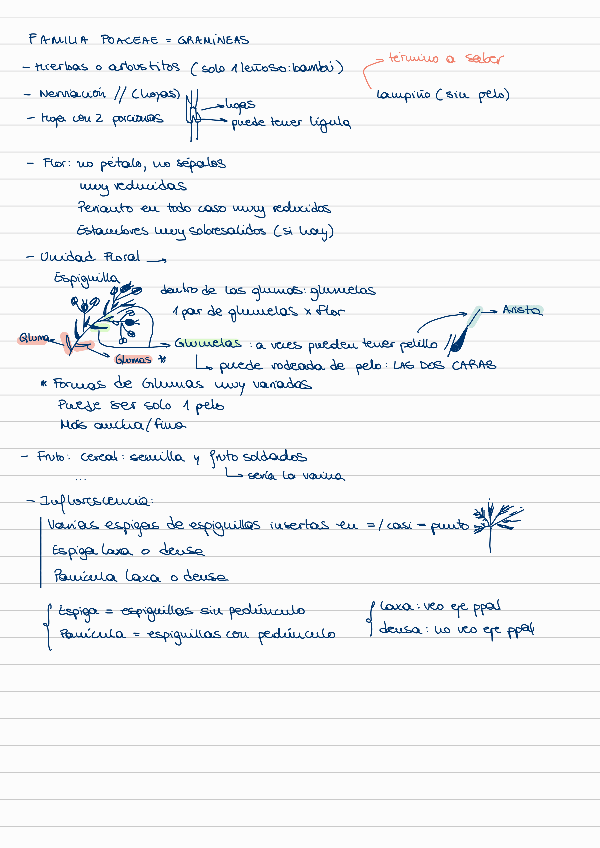 FAMILIA POACEAE = GRAMÍNEAS
- Hierbas o arbustitos (solo 1 leñoso: bambú)
término a saber
lampiño (sin pelo)
- Nerviación // (hojas)
- Hoja con 2 porciones
hojas
puede tener lígula
- Flor: no pétalo, no sépalos
muy reducidas
Perianto en todo caso muy reducidos
Estambres muy sobresalidos (si hay)
- Unidad Floral →
Espiguilla
dentro de las glumas: glumelas
1 par de glumelas x flor
Arista
Gluma
Glumelas : a veces pueden tener pelillo
Glumas *
puede rodeada de pelo: LAS DOS CARAS
* Formas de Glumas muy variadas
Puede ser solo 1 pelo
Más ancha/fina
- Fruto: cereal: semilla y fruto soldados
...
sería la vaina
- Inflorescencia:
Varias espigas de espiguillas insertas en =/casi = punto
Espiga laxa o densa
Panícula laxa o densa
Espiga = espiguillas sin pedúnculo
Panícula = espiguillas con pedúnculo
laxa: veo eje ppal
densa: no veo eje ppal